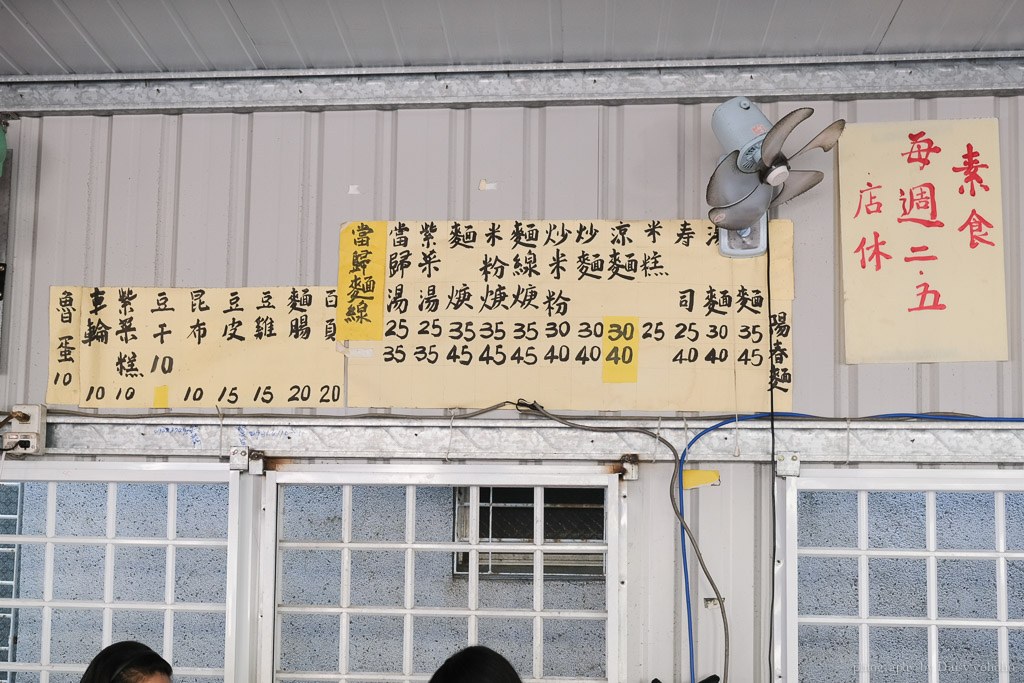 素食
每週二.五
店休
陽春麵
麵 35 45
麵 30 40
寿司 25 40
米糕 25
涼麵 30 40
炒麵 30 40
炒米粉 30 40
麵線焿 35 45
米粉焿 35 45
麵焿 35 45
紫菜湯 25 35
當歸湯 25 35
當歸麵線
百頁 20
麵腸 20
豆雞 15
豆皮 15
昆布 10
豆干 10
紫菜糕 10
車輪 10
魯蛋 10